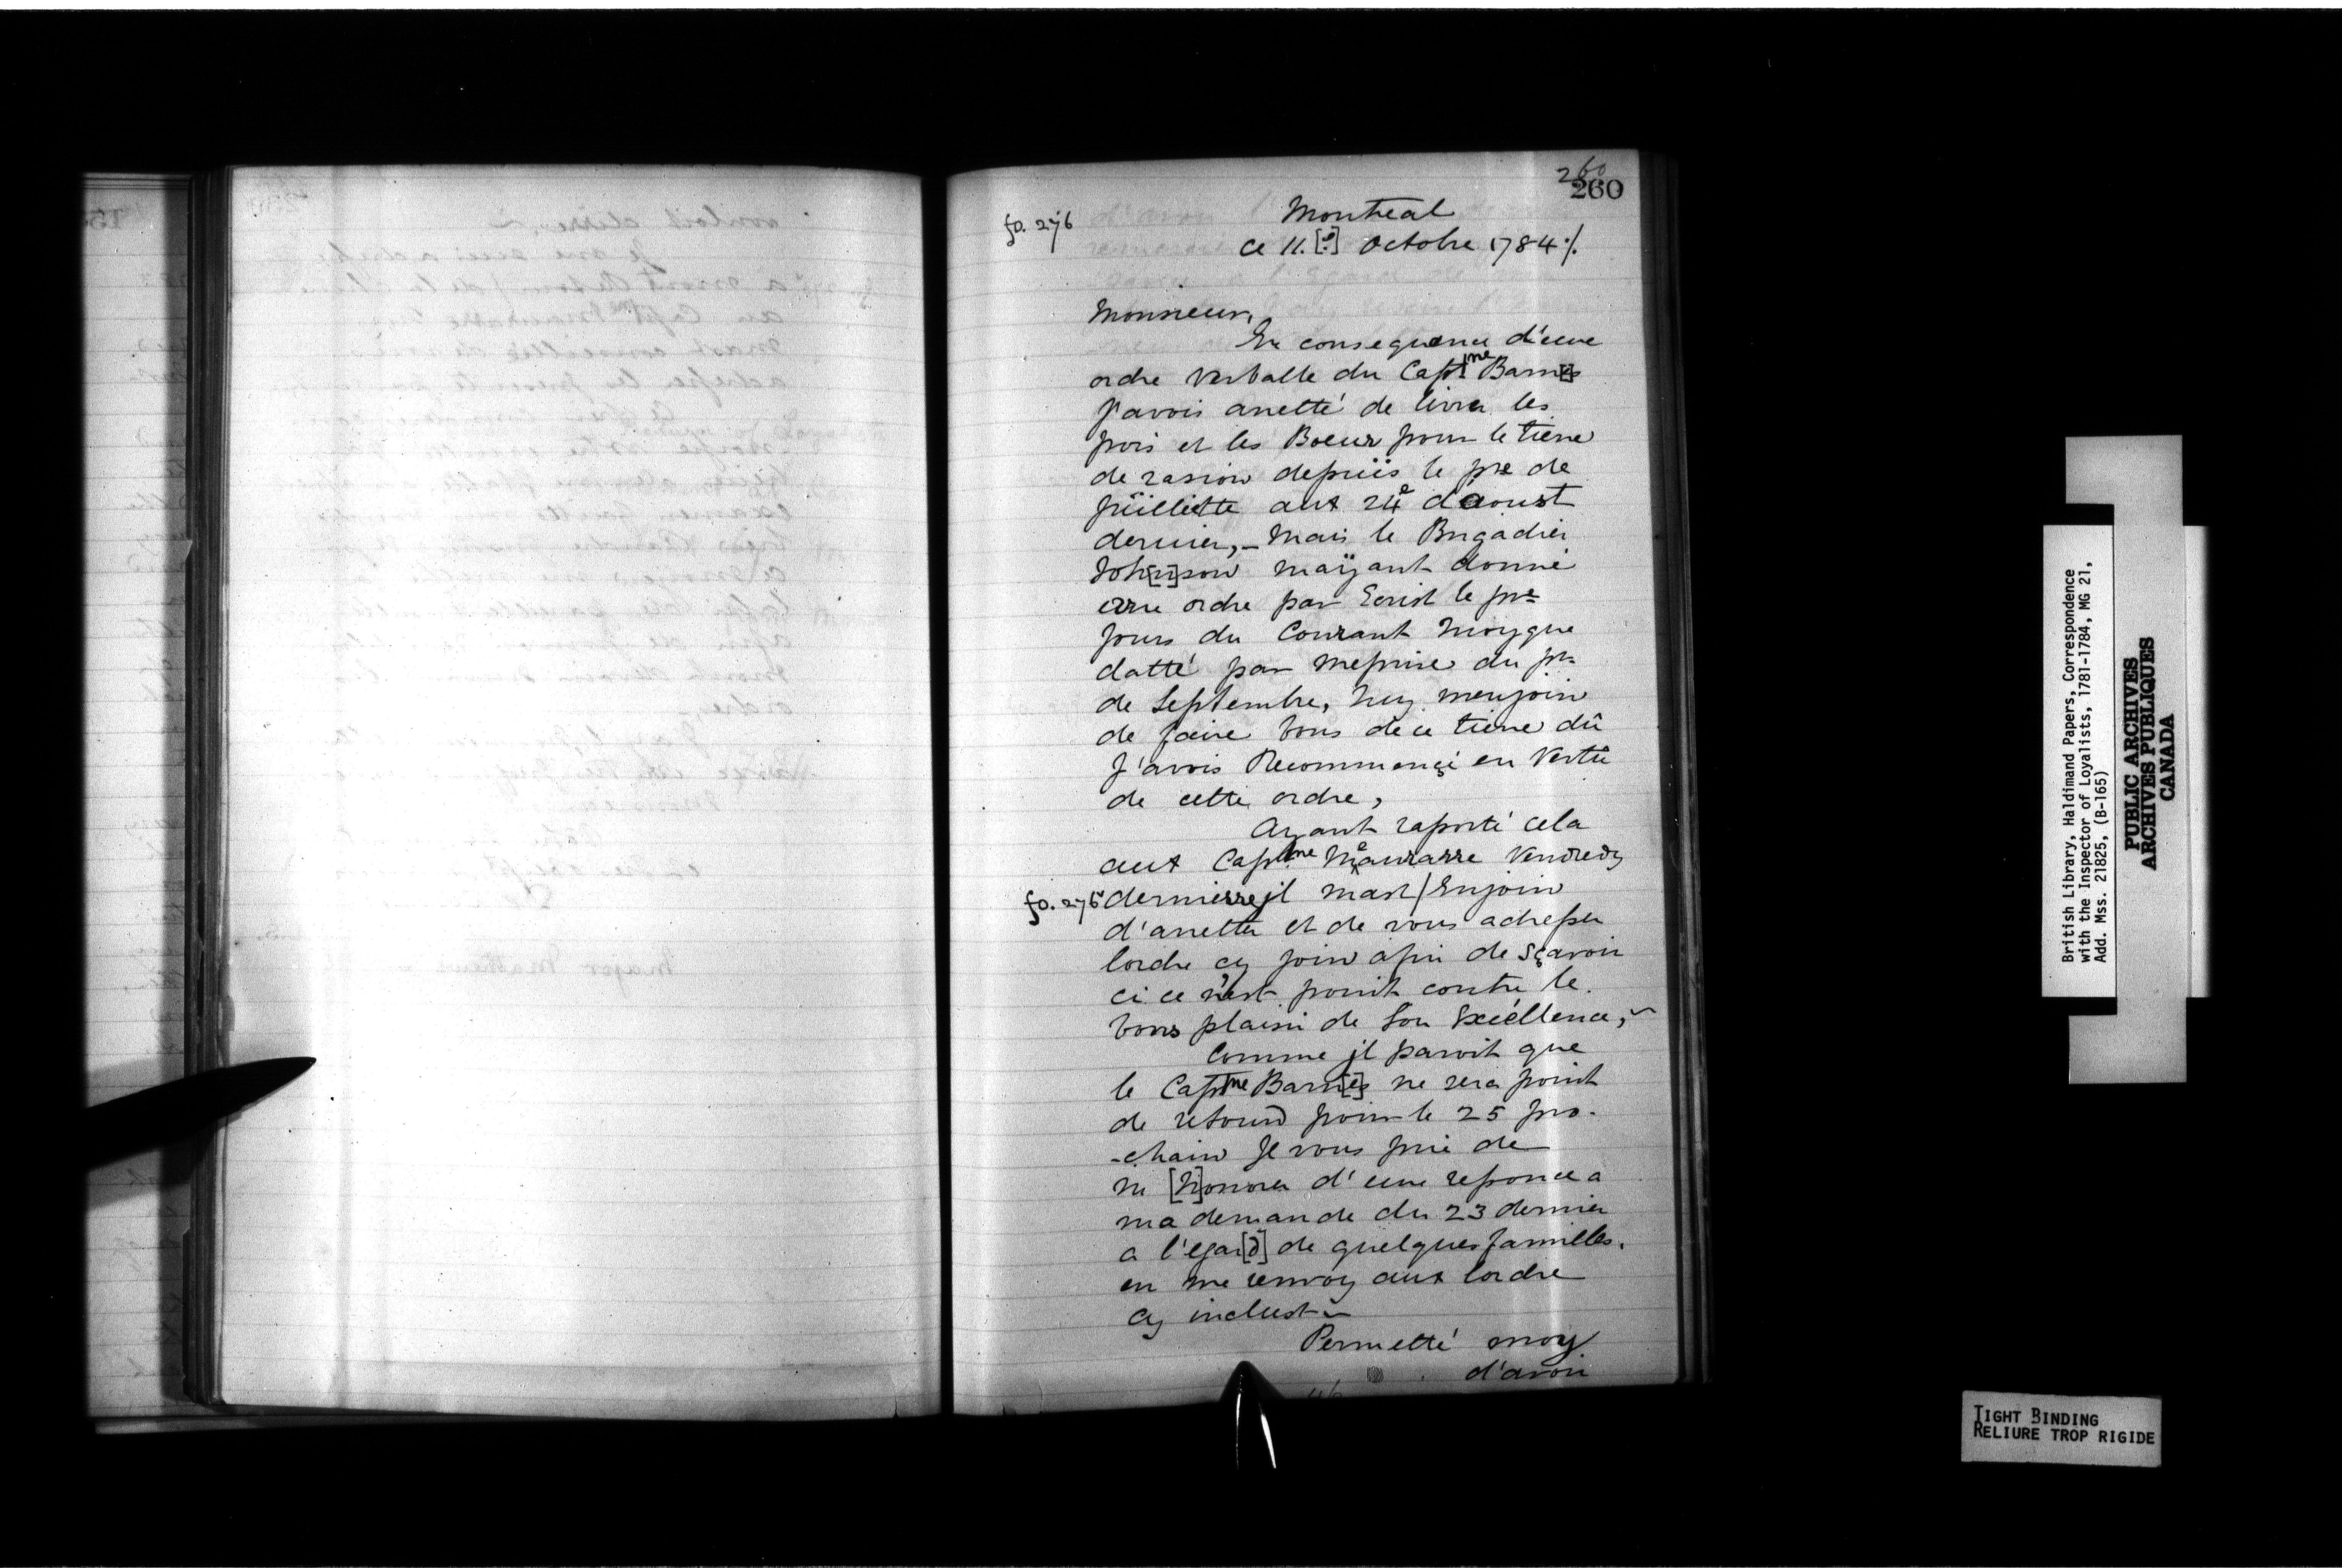 260
260
fo. 276
Montreal
ce 11.[e] Octobre 1784 ./.
Monsieur,
En consequence d'eune
ordre verballe du Captne Barn[e]s
J'avois arretté de livrer les
pois et les Boeur pour le tiere
de rasion depuïs le pre de
Jüilliette aux 24e d'aoust
dernier,_ Mais le Brigadier
Joh[n]son maÿant donné
erre ordre par Ecrist le pre
Jours du Courant Moy que
datté par meprise du pr.
de Septembre, enjoin
de faire bons de ce tiere dû
J'avois Recommençé en Vertü
de cette ordre,
Ayant raporté cela
aux Captne Maurarre Vendredy
fo. 276b dernierre jl mast / Enjoin
d'arretter et de vous adresser
lordre cy join afin de sçavoir
ci ce n'est point contre le
bons plaisir de Son Exéellence,~
Comme jl paroit que
le Captne Barn[e]s ne sera point
de retourd pour le 25 pro-
-chain Je vous prie de
m [h]onorer d'eune reponce a
ma demande du 23 dernier
a l'egar[d] de quelques familles.
en me renvoy aux lordre
cy inclust ~
Permetté moy
d'avoir
British Library, Haldimand Papers, Correspondence
with the Inspector of Loyalists, 1781-1784, MG 21,
Add. Mss. 21825, (B-165)
PUBLIC ARCHIVES
ARCHIVES PUBLIQUES
CANADA
TIGHT BINDING
RELIURE TROP RIGIDE